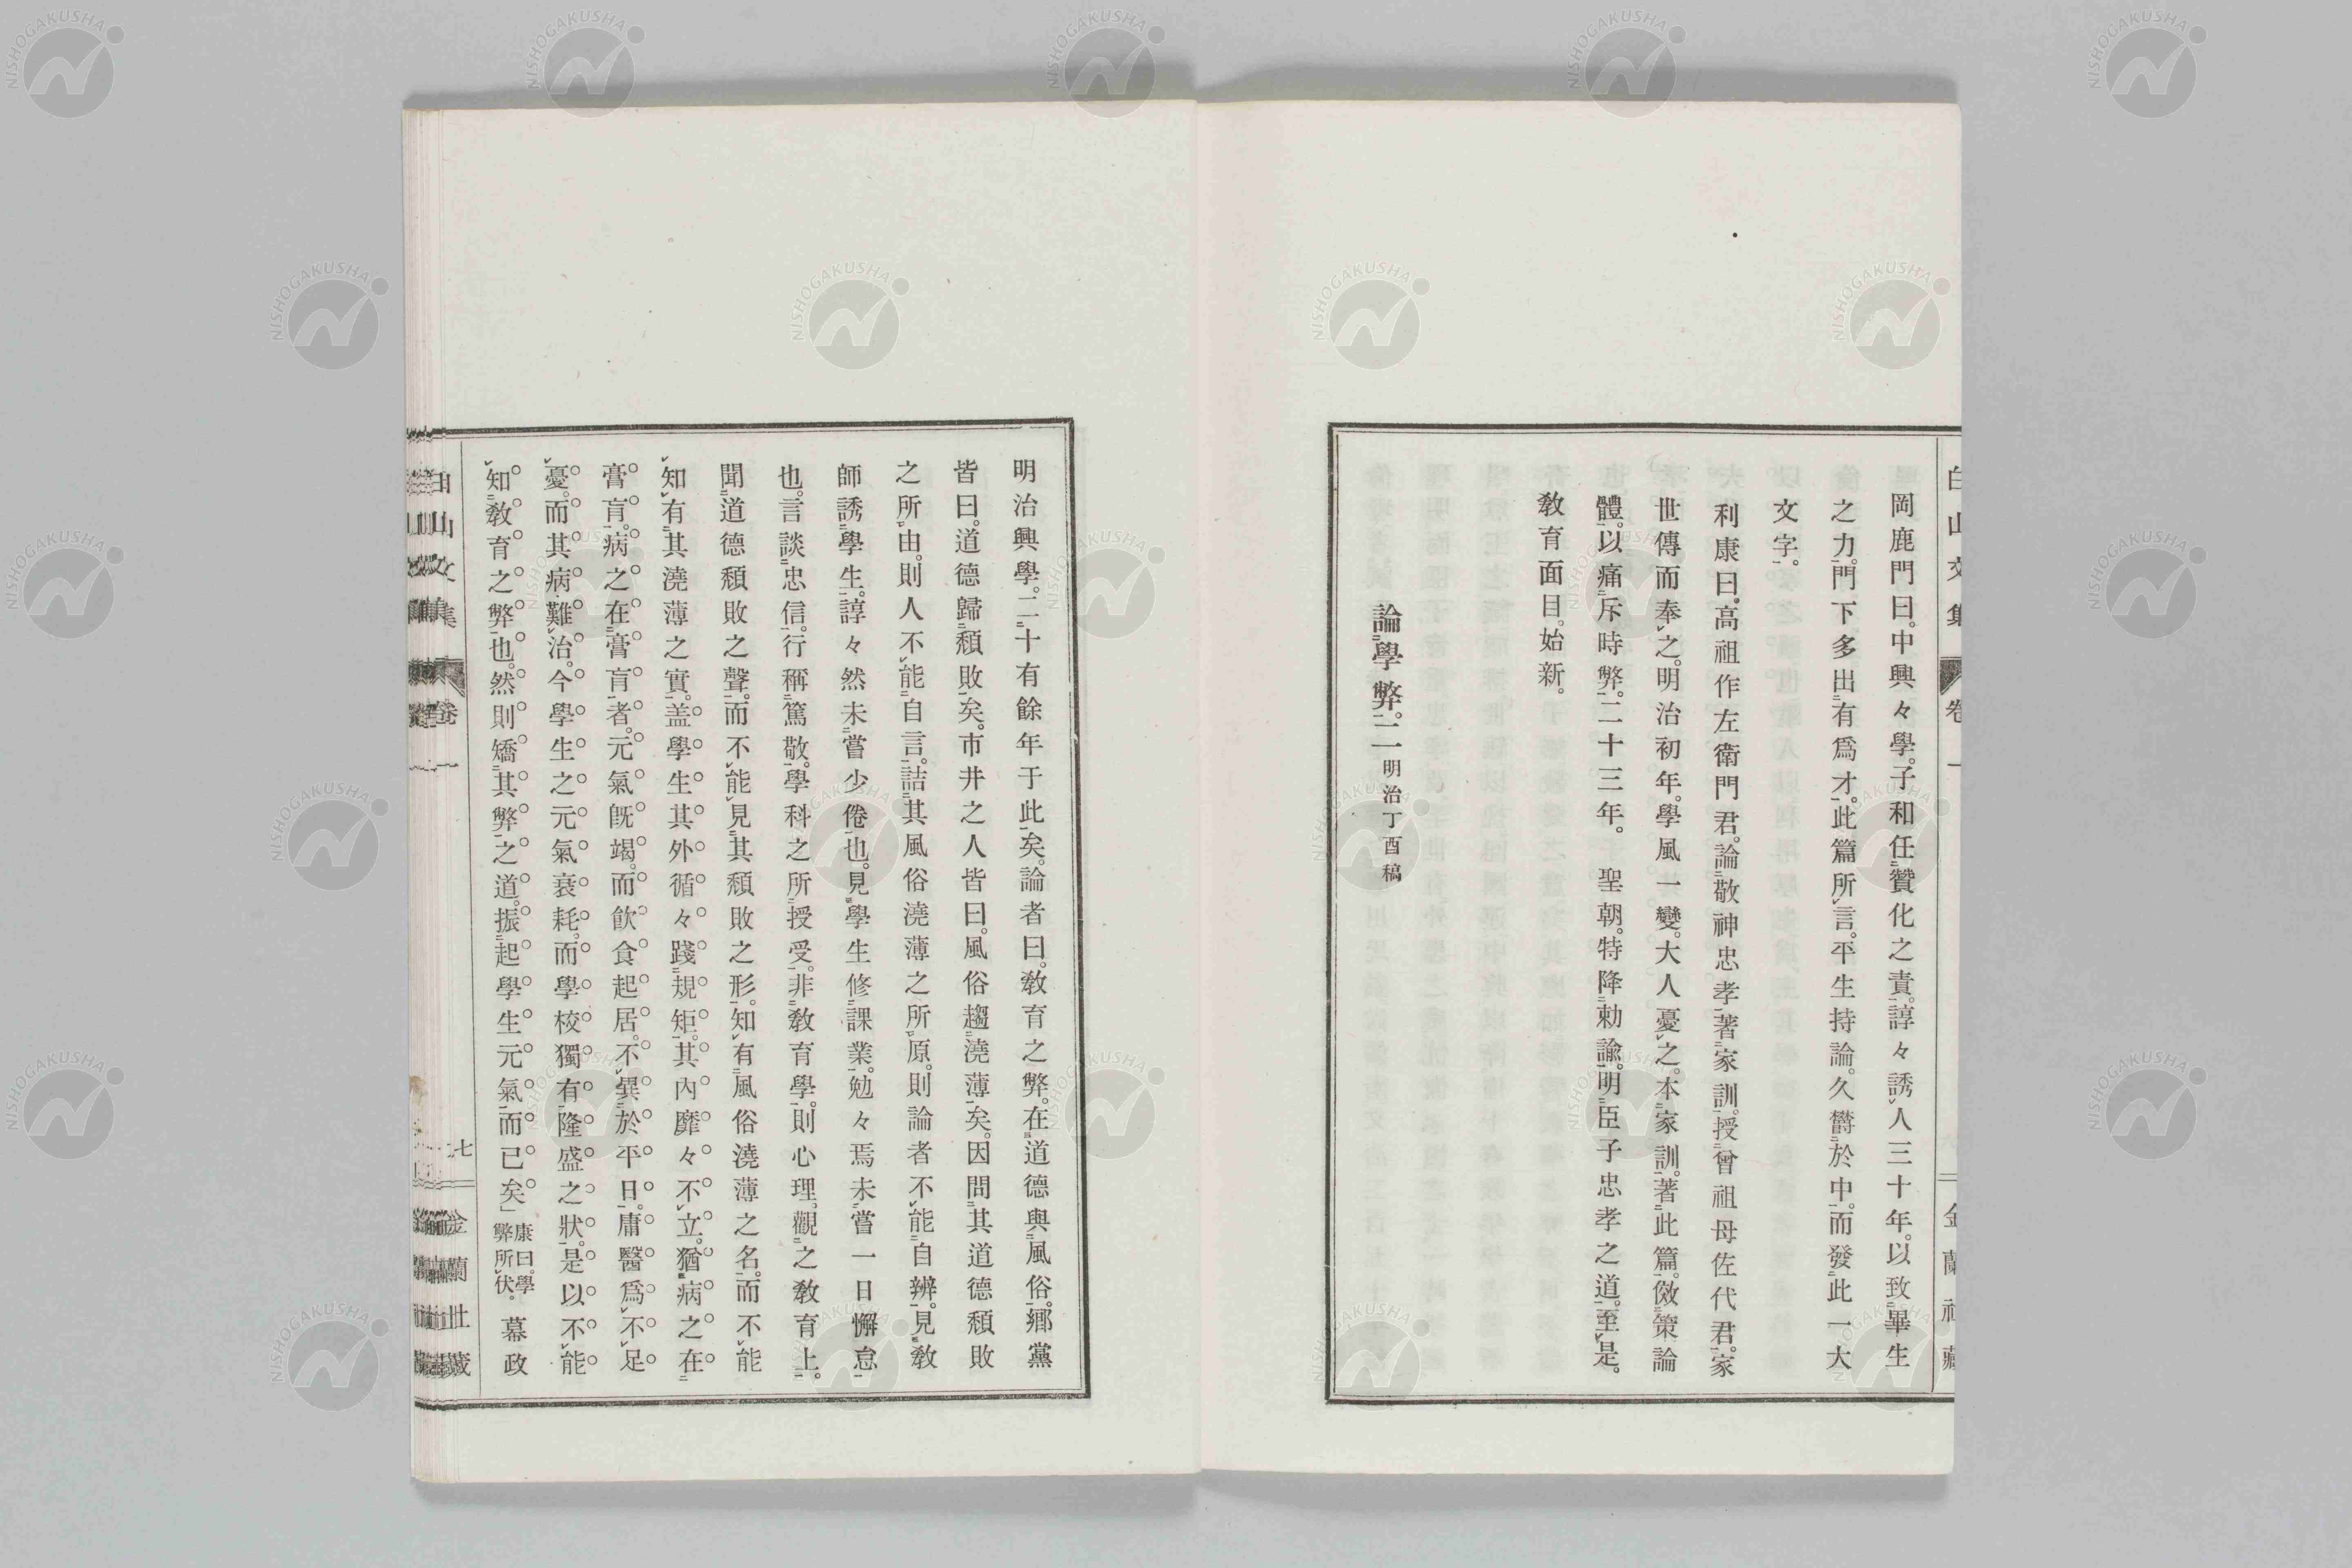 岡鹿門曰。中興々學。子和任贊化之責。諄々誘人三十年。以致畢生
之力。門下多出有爲才。此篇所言。平生持論。久欝於中。而發此一大
文字。
利康曰。高祖作左衞門君。論敬神忠孝。著家訓。授曾祖母佐代君。家
世傳而奉之。明治初年。學風一變。大人憂之。本家訓。著此篇。傚策論
體。以痛斥時弊。二十三年。 聖朝。特降勅諭。明臣子忠孝之道。至是。
敎育面目。始新。
論學弊。二 明治丁酉稿
明治興學。二十有餘年于此矣。論者曰。敎育之弊。在道德與風俗。鄕黨
皆曰。道德歸頽敗矣。市井之人皆曰。風俗趨澆薄矣。因問其道德頽敗
之所由。則人不能自言。詰其風俗澆薄之所原。則論者不能自辨。見敎
師誘學生。諄々然未嘗少倦也。見學生修課業。勉々焉未嘗一日懈怠
也。言談忠信。行稱篤敬。學科之所授受。非敎育學。則心理。觀之敎育上。
聞道德頽敗之聲。而不能見其頽敗之形。知有風俗澆薄之名。而不能
知有其澆薄之實。盖學生其外循々踐規矩。其內靡々不立。猶病之在
膏肓。病之在膏肓者。元氣旣竭。而飮食起居。不異於平日。庸醫爲不足
憂。而其病難治。今學生之元氣衰耗。而學校獨有隆盛之狀。是以不能
知敎育之弊也。然則矯其弊之道。振起學生元氣而已矣」康曰。學弊所伏。 幕政
白山文集 卷一
金蘭社藏
白山文集 卷一
七
金蘭社藏
NISHOGAKUSHA